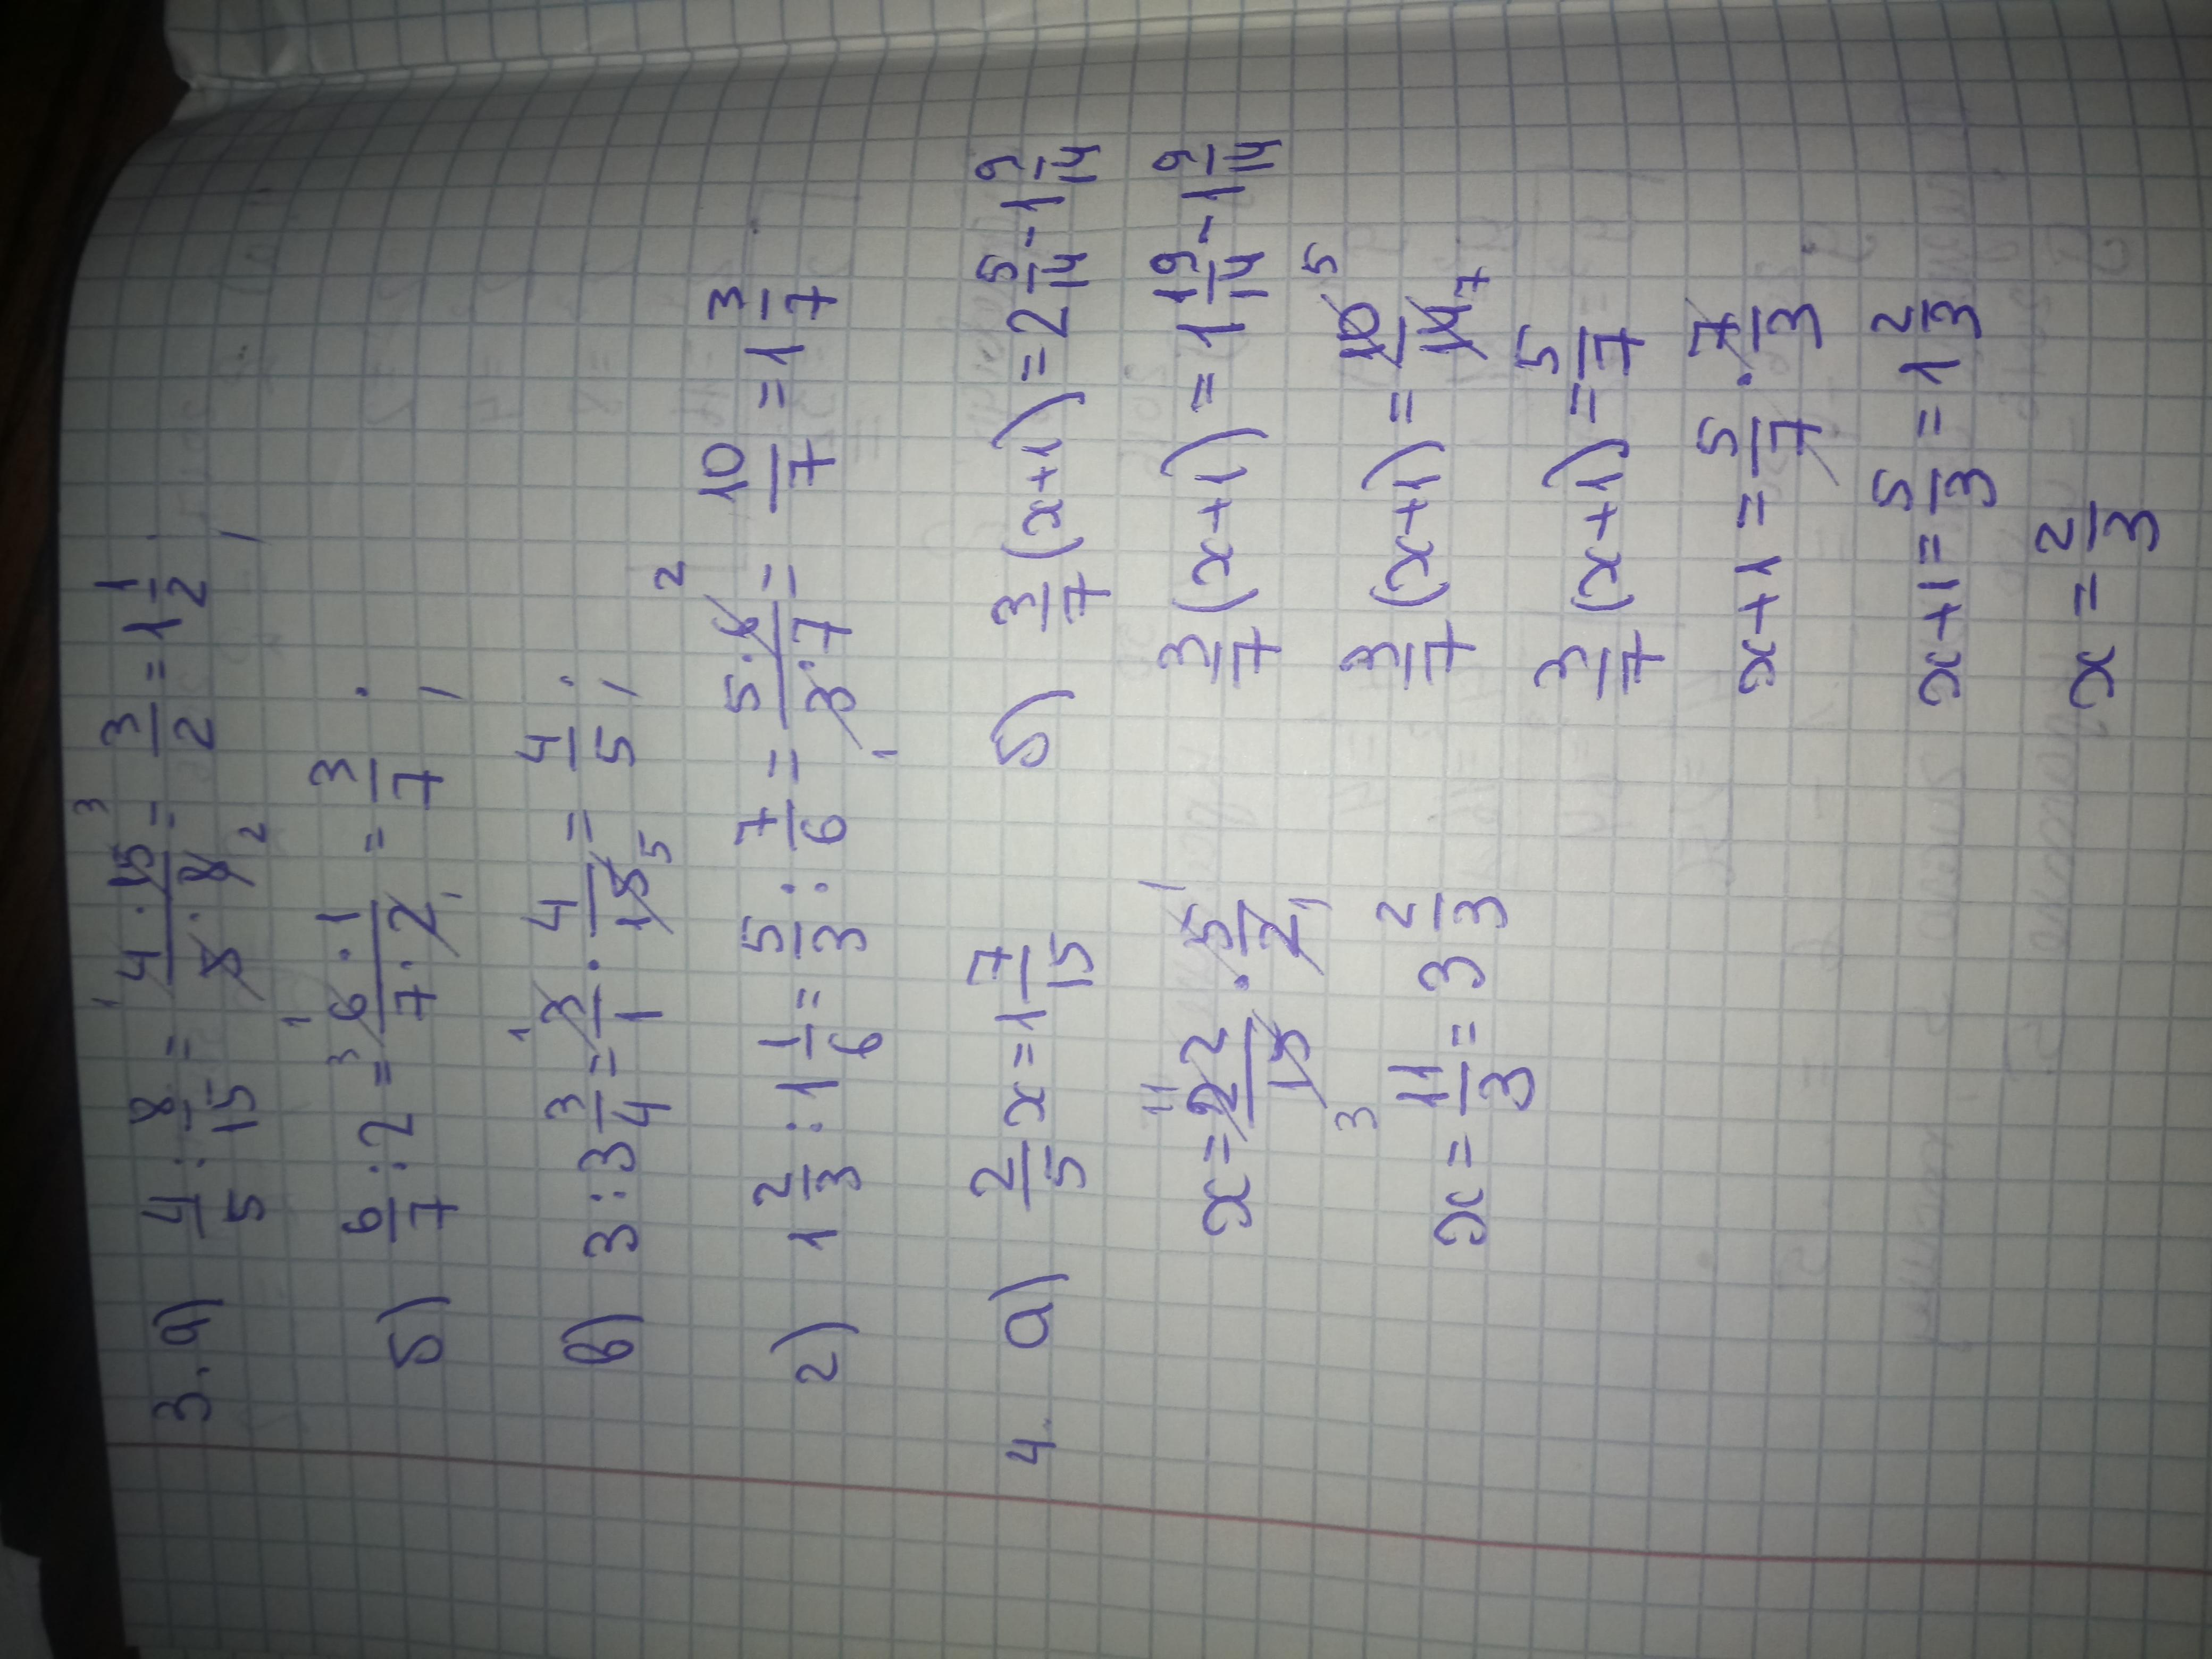 3. а) 4/5 : 8/15 = 4·15/5·8 = 3/2 = 1 1/2;
б) 6/7 : 2 = 6·1/7·2 = 3/7;
в) 3 : 3 3/4 = 3/1 · 4/15 = 4/5;
г) 1 2/3 : 1 1/6 = 5/3 : 7/6 = 5·6/3·7 = 10/7 = 1 3/7
4. а) 2/5 x = 1 7/15
x = 22/15 · 5/2
x = 11/3 = 3 2/3
б) 3/7 (x+1) = 2 5/14 - 1 9/14
3/7 (x+1) = 1 19/14 - 1 9/14
3/7 (x+1) = 10/14
3/7 (x+1) = 5/7
x+1 = 5/7 · 7/3
x+1 = 5/3 = 1 2/3
x = 2/3